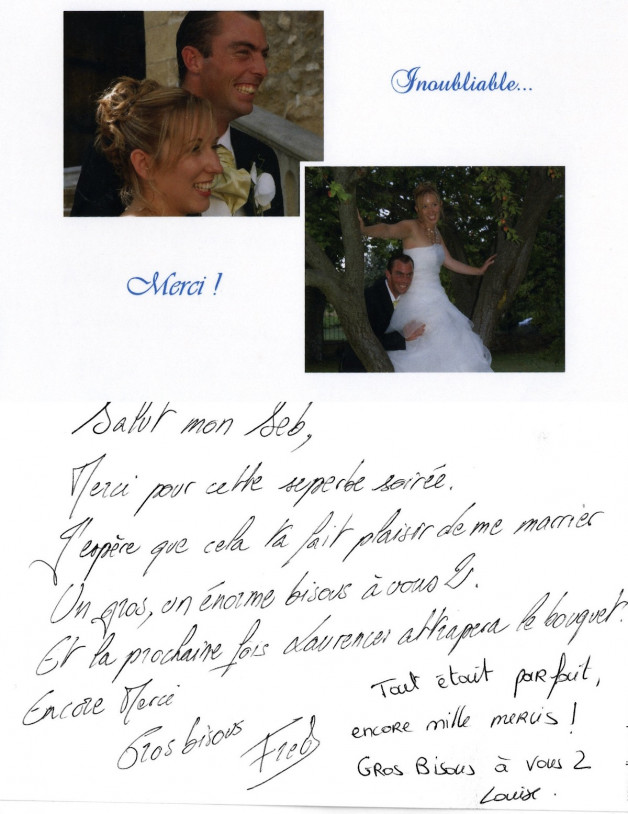 Inoubliable...
Merci !
Salut mon Seb,
Merci pour cette superbe soirée.
J'espère que cela t'a fait plaisir de me marrier
Un gros, un énorme bisous à vous 2.
Et la prochaine fois Laurence attrapera le bouquet.
Encore Merci
Gros bisous
Fred
Tout était parfait,
encore mille mercis !
Gros Bisous à vous 2
Louise.